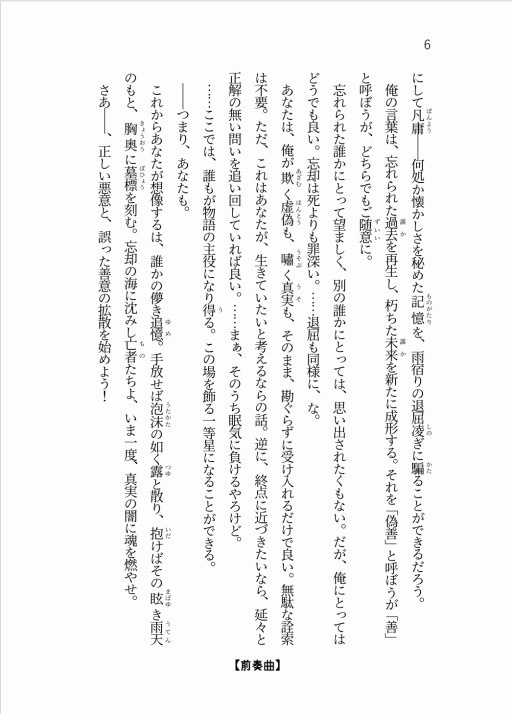 6
にして凡庸――何処か懐かしさを秘めた記憶を、雨宿りの退屈凌ぎに騙ることができるだろう。
俺の言葉は、忘れられた過去を再生し、朽ちた未来を新たに成形する。それを「偽善」と呼ぼうが「善」
と呼ぼうが、どちらでもご随意に。
忘れられた誰かにとって望ましく、別の誰かにとっては、思い出されたくもない。だが、俺にとっては
どうでも良い。忘却は死よりも罪深い。……退屈も同様に、な。
あなたは、俺が欺く虚偽も、嘯く真実も、そのまま、勘ぐらずに受け入れるだけで良い。無駄な詮索
は不要。ただ、これはあなたが、生きていたいと考えるならの話。逆に、終点に近づきたいなら、延々と
正解の無い問いを追い回していれば良い。……まぁ、そのうち眠気に負けるやろけど。
……ここでは、誰もが物語の主役になり得る。この場を飾る一等星になることができる。
――つまり、あなたも。
これからあなたが想像するは、誰かの儚き追憶。手放せば泡沫の如く露と散り、抱けばその眩き雨天
のもと、胸奥に墓標を刻む。忘却の海に沈みし亡者たちよ、いま一度、真実の闇に魂を燃やせ。
さあ――、正しい悪意と、誤った善意の拡散を始めよう!
【前奏曲】